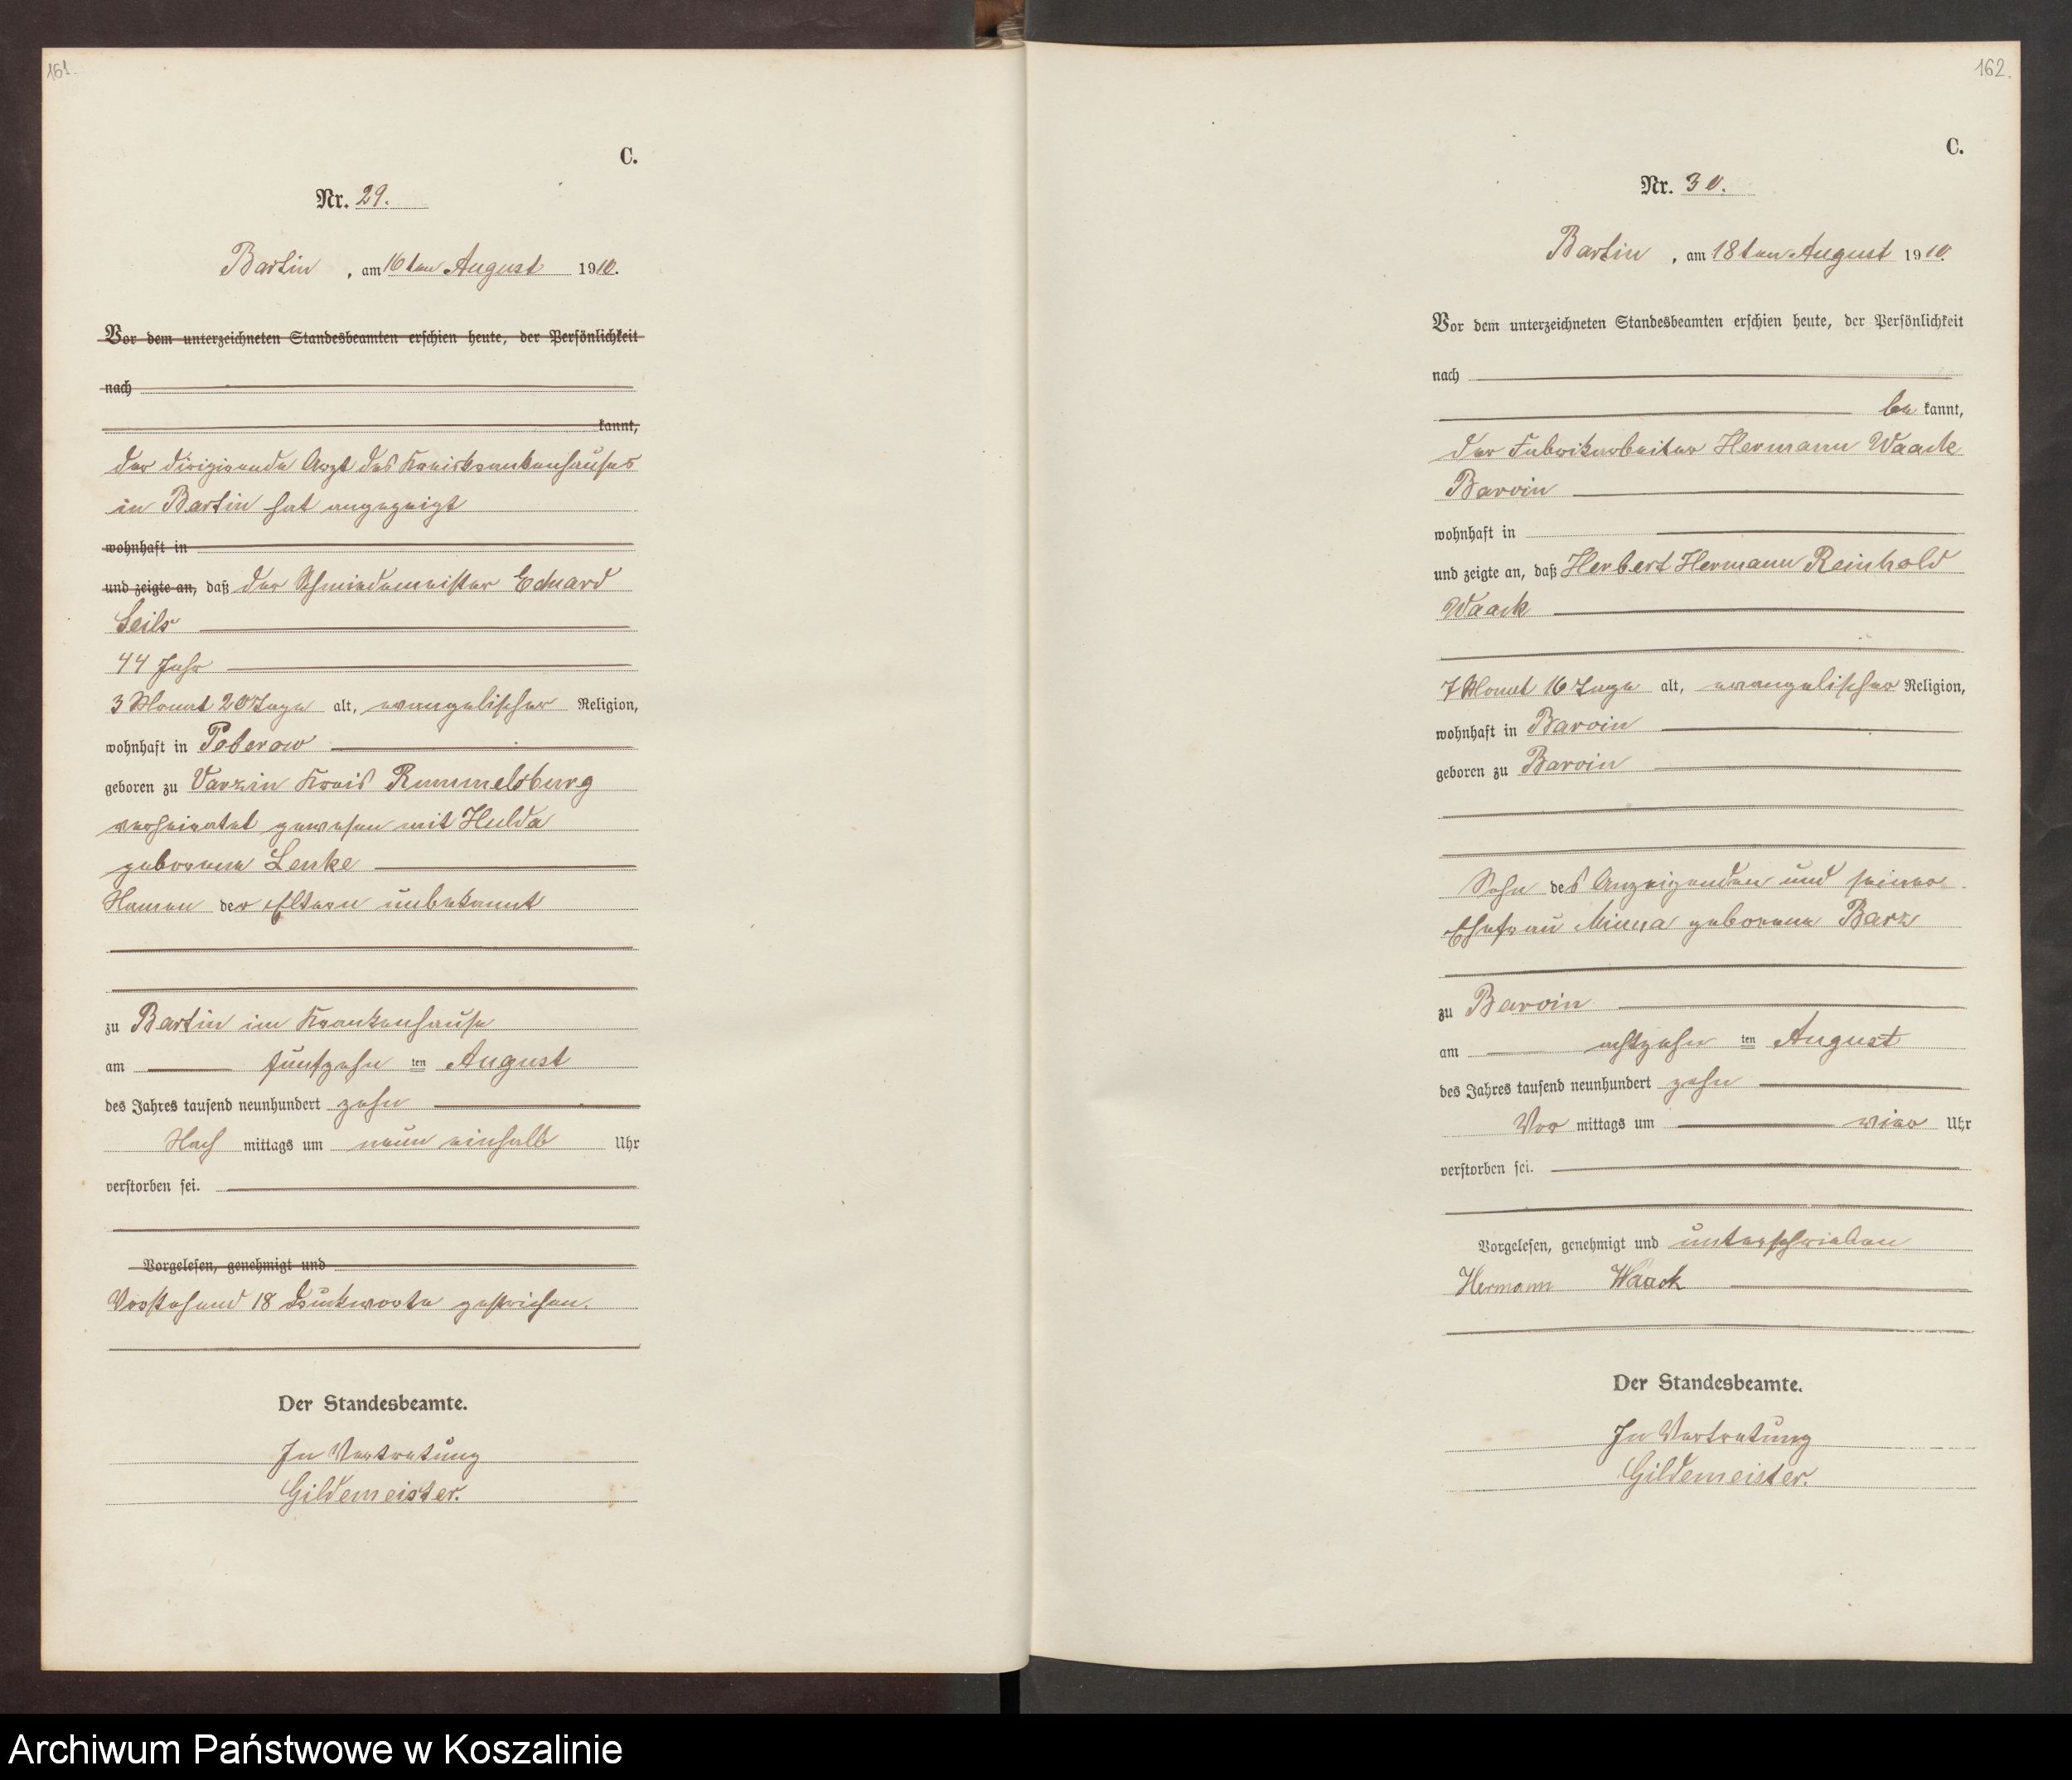 161.
C.
Nr. 29.
Bartin, am 16ten August 1910.
Vor dem unterzeichneten Standesbeamten erschien heute, der Persönlichkeit
nach
kannt,
der dirigirende Arzt des Kreiskrankenhauses
in Bartin hat angezeigt
wohnhaft in
und zeigte an, daß der Schmiedemeister Eduard
Seils
44 Jahr
3 Monat 20 Tage alt, evangelischer Religion,
wohnhaft in Poberow
geboren zu Varzin Kreis Rummelsburg
verheiratet gewesen mit Hulda
geborene Lenke
Namen der Eltern unbekannt
zu Bartin im Krankenhause
am fünfzehn ten August
des Jahres tausend neunhundert zehn
Nach mittags um neun einhalb Uhr
verstorben sei.
Vorgelesen, genehmigt und
Vorstehend 18 Druckworte gestrichen.
Der Standesbeamte.
In Vertretung
Gildemeister.
162.
C.
Nr. 30.
Bartin, am 18ten August 1910.
Vor dem unterzeichneten Standesbeamten erschien heute, der Persönlichkeit
nach
be kannt,
der Fabrikarbeiter Hermann Waack
Barvin
wohnhaft in
und zeigte an, daß Herbert Hermann Reinhold
Waack
7 Monat 16 Tage alt, evangelischer Religion,
wohnhaft in Barvin
geboren zu Barvin
Sohn des Anzeigenden und seiner
Ehefrau Minna geborene Barz
zu Barvin
am achtzehn ten August
des Jahres tausend neunhundert zehn
Vor mittags um vier Uhr
verstorben sei.
Vorgelesen, genehmigt und unterschrieben
Hermann Waack
Der Standesbeamte.
In Vertretung
Gildemeister.
Archiwum Państwowe w Koszalinie